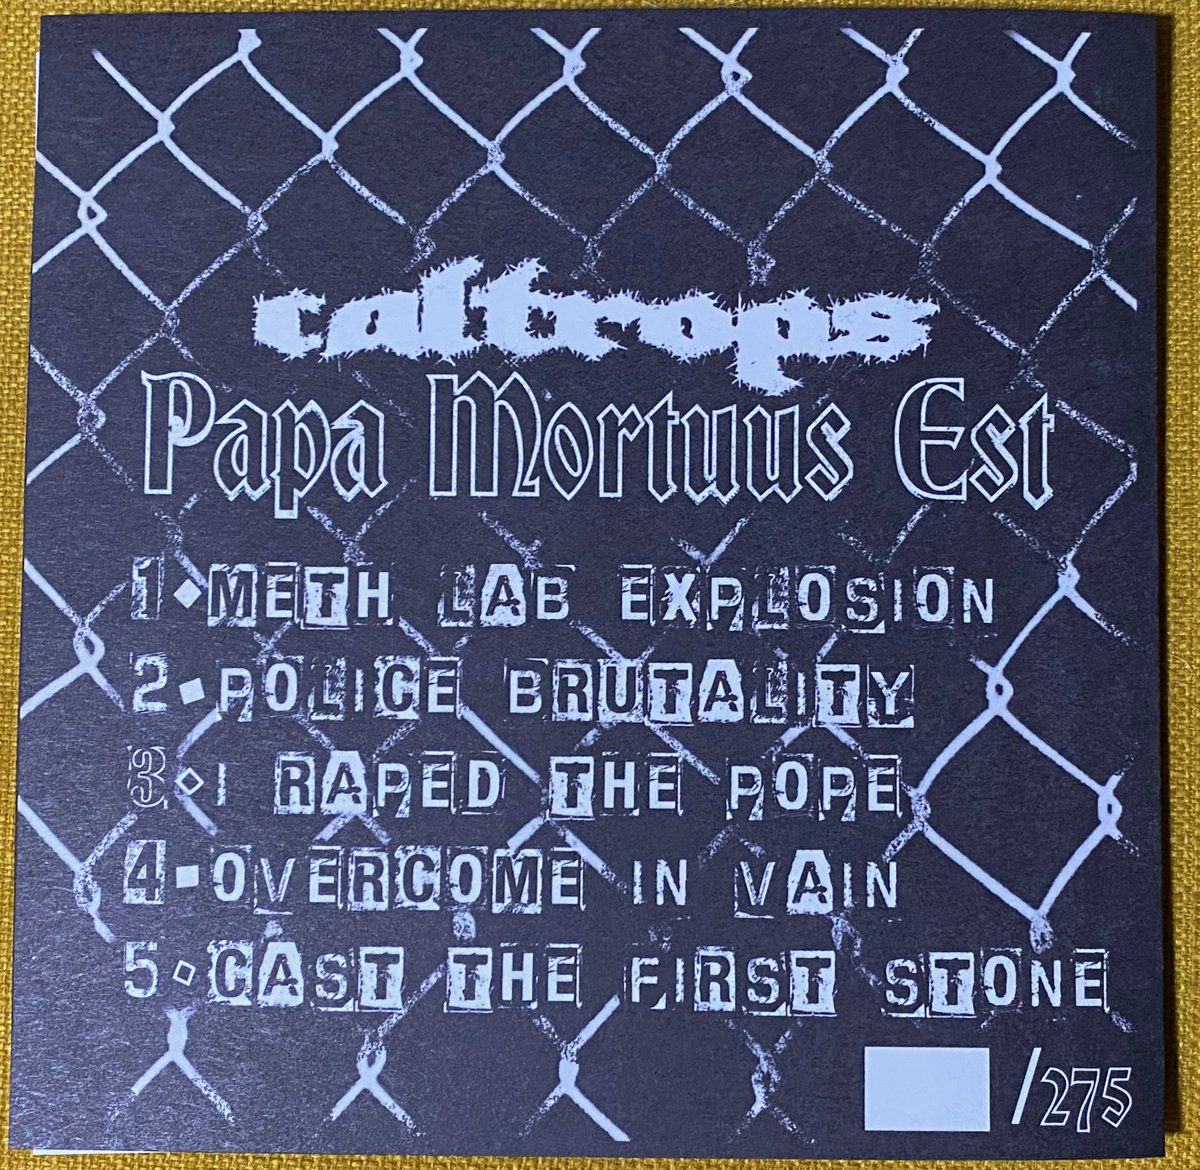 caltrops
Papa Mortuus Est
1·METH LAB EXPLOSION
2·POLICE BRUTALITY
3·I RAPED THE POPE
4·OVERCOME IN VAIN
5·CAST THE FIRST STONE
/275